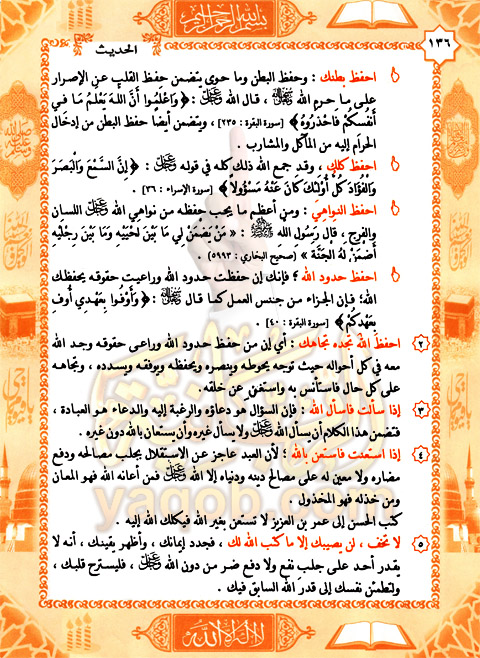 بسم الله الرحمن الرحيم
١٣٦
الحديث
احفظ بطنك : وحفظ البطن وما حوى يتضمن حفظ القلب عن الإصرار
على ما حرم الله ﷻ ، قال الله ﷻ : ﴿ وَاعْلَمُوا أَنَّ اللَّهَ يَعْلَمُ مَا فِي
أَنفُسِكُمْ فَاحْذَرُوهُ ﴾ [سورة البقرة : ٢٣٥] ، ويتضمن أيضًا حفظ البطن من إدخال
الحرام إليه من المآكل والمشارب .
احفظ كلك , وقد جمع الله ذلك كله في قوله ﷻ : ﴿ إِنَّ السَّمْعَ وَالْبَصَرَ
وَالْفُؤَادَ كُلُّ أُولَئِكَ كَانَ عَنْهُ مَسْؤُولاً ﴾ [سورة الإسراء : ٣٦] .
احفظ النواهي : ومن أعظم ما يجب حفظه من نواهي الله ﷻ اللسان
والفرج ، قال رسول الله ﷺ : « مَنْ يَضْمَنْ لِي مَا بَيْنَ لَحْيَيْهِ وَمَا بَيْنَ رِجْلَيْهِ
أَضْمَنْ لَهُ الْجَنَّةَ » (صحيح البخاري : ٥٩٩٣) .
احفظ حدود الله ؛ فإنك إن حفظت حدود الله وراعيت حقوقه يحفظك
الله؛ فإن الجزاء من جنس العمل كما قال ﷻ : ﴿ وَأَوْفُوا بِعَهْدِي أُوفِ
بِعَهْدِكُمْ ﴾ [سورة البقرة : ٤٠] .
٢ احفظ الله تجده تجاهك : أي إن من حفظ حدود الله وراعى حقوقه وجد الله
معه في كل أحواله حيث توجه يحوطه وينصره ويحفظه ويوفقه ويسدده ، ويتجاهه
على كل حال فاستأنس به واستغن عن خلقه.
٣ إذا سألت فاسأل الله : فإن السؤال هو دعاؤه والرغبة إليه والدعاء هو العبادة ،
فتضمن هذا الكلام أن يسأل الله ﷻ ولا يسأل غيره وأن يستعان بالله دون غيره .
٤ إذا استعنت فاستعن بالله ؛ لأن العبد عاجز عن الاستقلال بجلب مصالحه ودفع
مضاره ولا معين له على مصالح دينه ودنياه إلا الله ﷻ فمن أعانه الله فهو المعان
ومن خذله فهو المخذول .
كتب الحسن إلى عمر بن العزيز لا تستعن بغير الله فيكلك الله إليه .
٥ لا تخف ، لن يصيبك إلا ما كتب الله لك ، فجدد إيمانك ، وأظهر يقينك ، أنه لا
يقدر أحد على جلب نفع ولا دفع ضر من دون الله ﷻ ، فليسترح قلبك ،
ولتطمئن نفسك إلى قدر الله السابق فيك .
yaqob.com
لا إله إلا الله